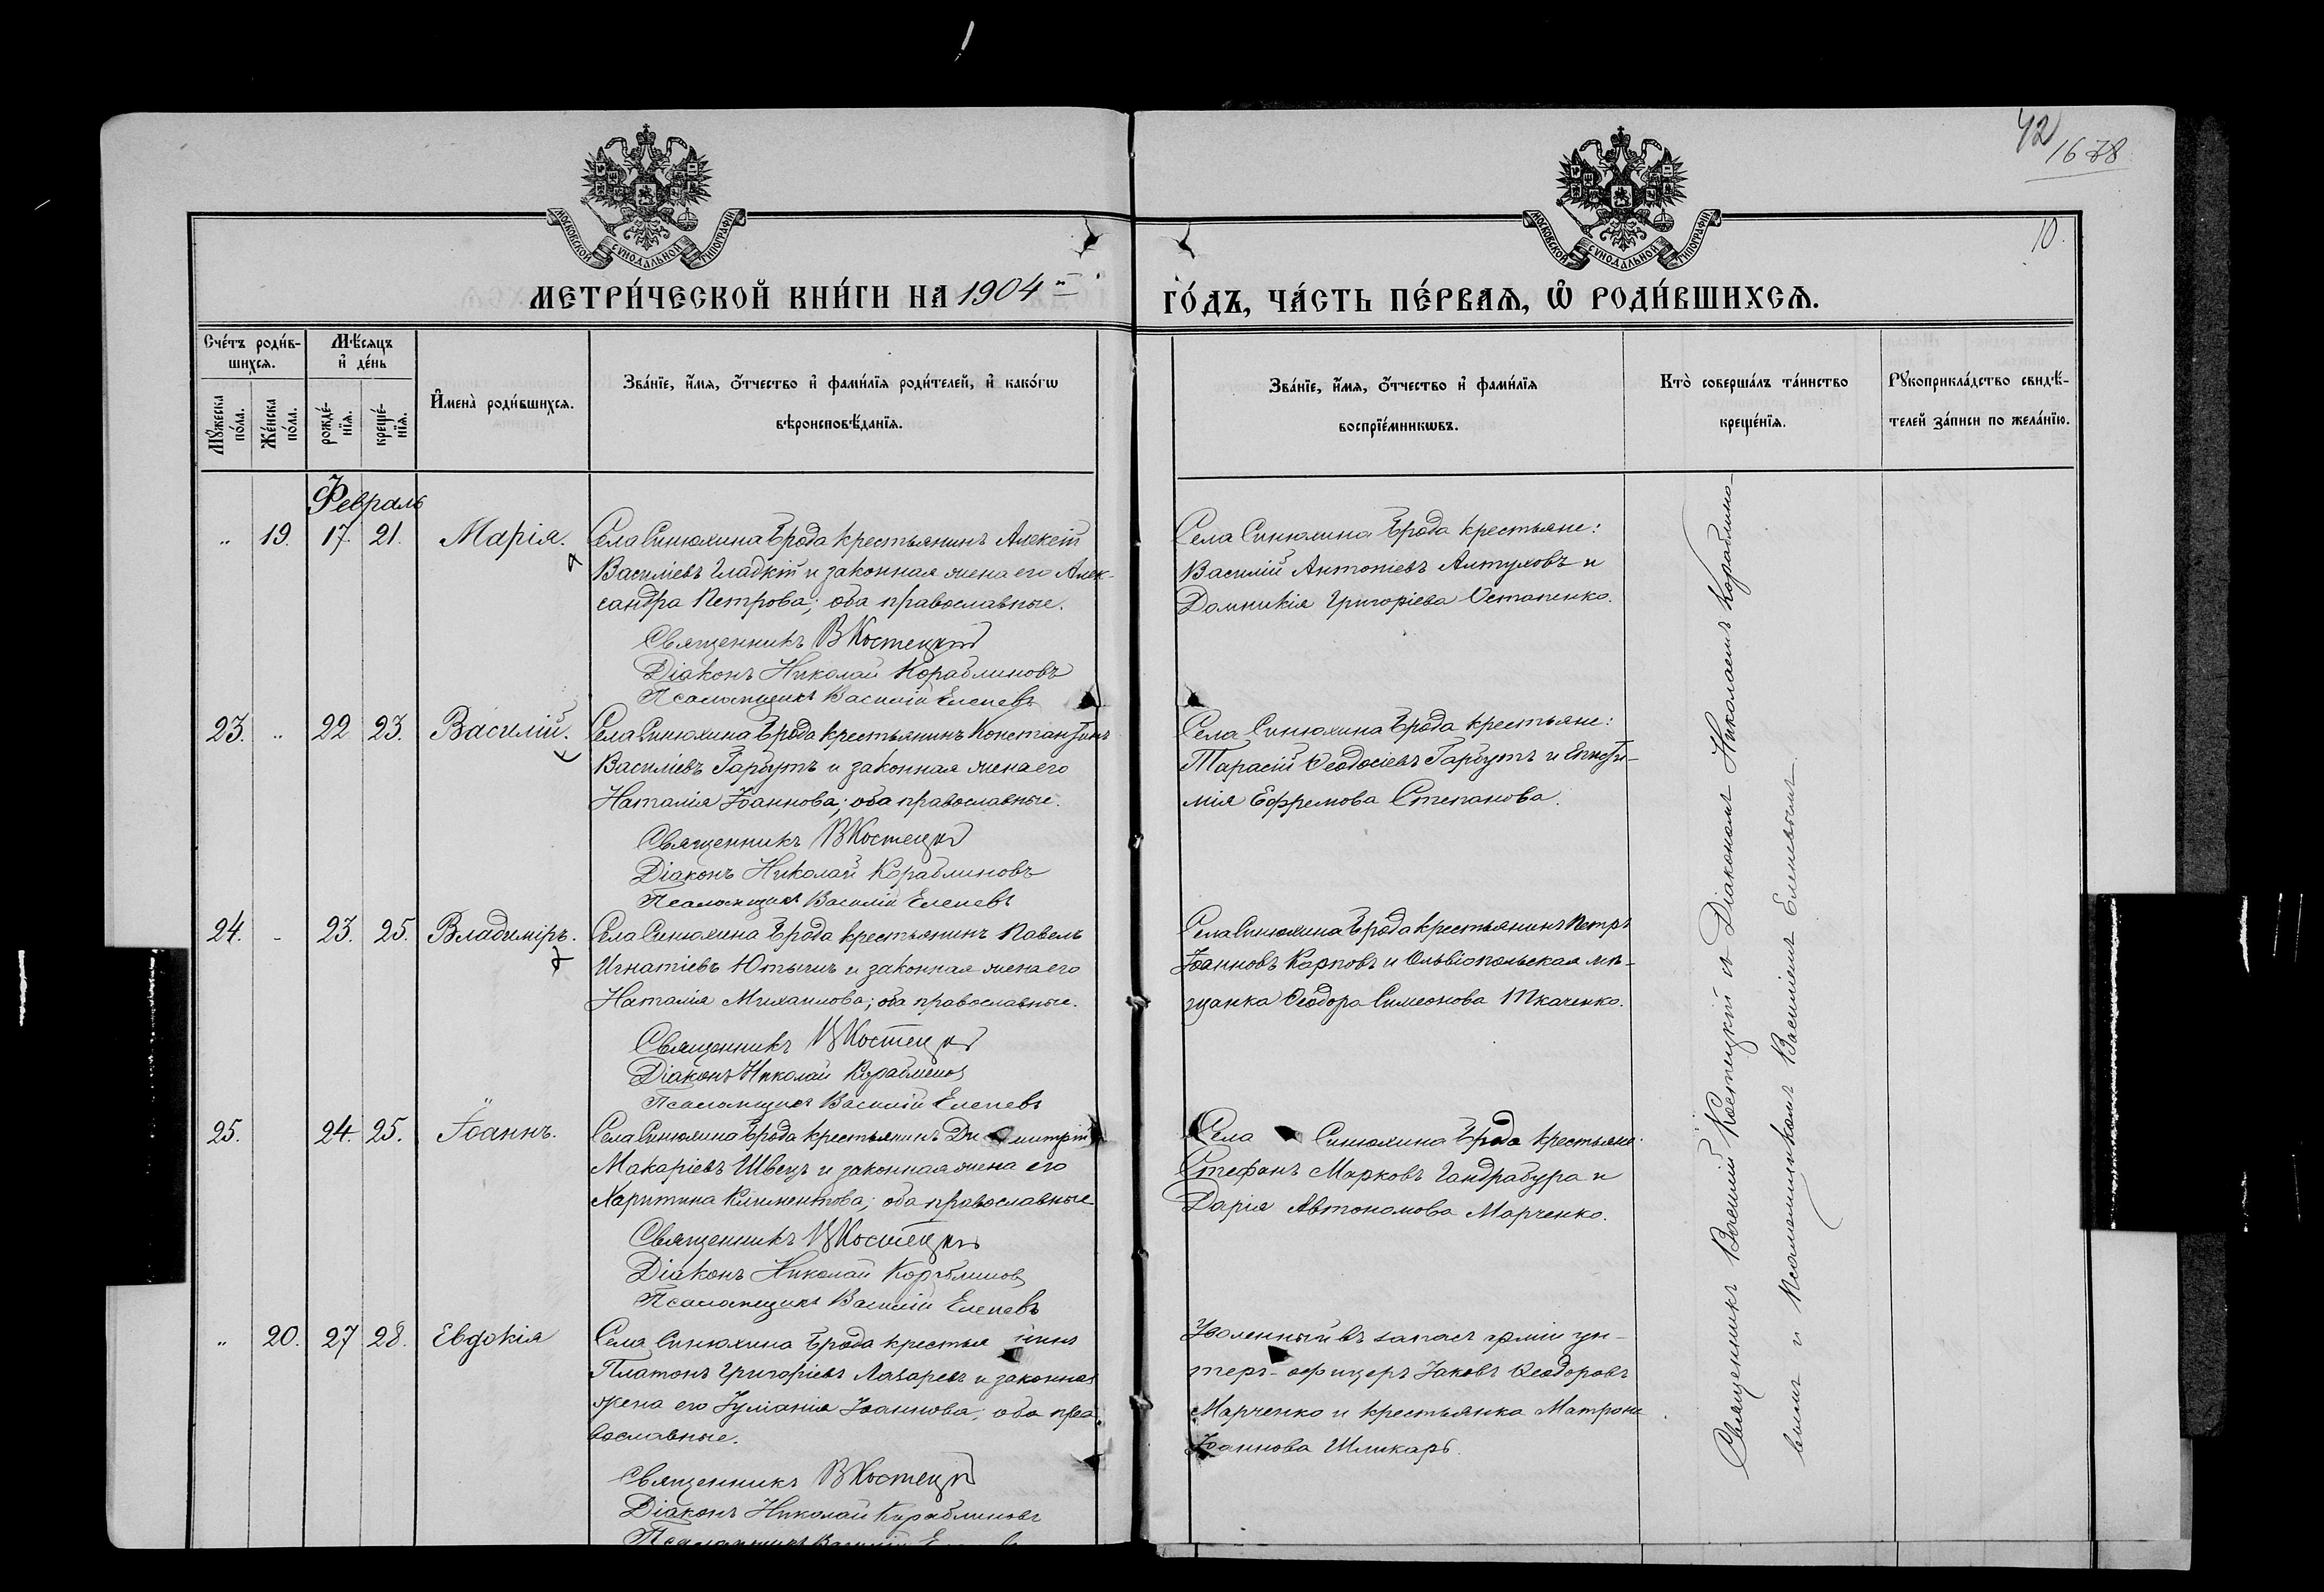 42
16 78
10.
МОСКОВСКОЙ СѴНОДАЛЬНОЙ ТИПОГРАФІИ
МОСКОВСКОЙ СѴНОДАЛЬНОЙ ТИПОГРАФІИ
МЕТРИ́ЧЕСКОЙ КНИ́ГИ НА 1904й
ГО́ДЪ, ЧА́СТЬ ПЕ́РВАѦ, Ѡ РОДИ́ВШИХСѦ.
Сче́тъ роди́в-
шихся.
Мѣ́сяцъ
и де́нь
Мꙋжеска по́ла.
Же́нска по́ла.
рожде́-
нїя.
креще́-
нїя.
Имена̀ роди́вшихся.
Зва́нїе, и́мя, о́тчество и фами́лїя роди́телей, и како́гѡ
вѣроисповѣ́данїя.
Зва́нїе, и́мя, о́тчество и фами́лїя
воспрїе́мникѡвъ.
Кто̀ соверша́лъ та́инство
креще́нїя.
Рꙋкоприкла́дство свидѣ́-
телей за́писи по жела́нїю.
Февраль
" 19. 17. 21. Марія.
Села Синюхина Брода крестьянинъ Алексій
Василіевъ Гладкій и законная жена его Алек-
сандра Петрова; оба православные.
Священникъ ВКостецкій
Діаконъ Николай Кораблиновъ
Псаломщикъ Василій Еленевъ
Села Синюхина Брода крестьяне:
Василій Антоніевъ Алтуховъ и
Домникія Григоріева Остапенко.
23. " 22 23. Василій.
Села Синюхина Брода крестьянинъ Константинъ
Василіевъ Гарбутъ и законная жена его
Наталія Іоаннова; оба православные.
Священникъ ВКостецкій
Діаконъ Николай Кораблиновъ
Псаломщикъ Василій Еленевъ
Села Синюхина Брода крестьяне:
Тарасій Ѳеодосіевъ Гарбутъ и
мія Ефремова Степанова.
24. " 23. 25. Владиміръ.
Села Синюхина Брода крестьянинъ Павелъ
Игнатіевъ и законная жена его
Наталія Михаилова; оба православные.
Священникъ ВКостецкій
Діаконъ Николай Кораблиновъ
Псаломщикъ Василій Еленевъ
Села Синюхина Брода крестьянинъ Петръ
Іоанновъ Карповъ и Ольвіопольская мѣ-
щанка Ѳеодора Симеонова Ткаченко.
25. " 24. 25. Іоаннъ.
Села Синюхина Брода крестьянинъ Димитрій
Макаріевъ Швецъ и законная жена его
Харитина Климентова; оба православные
Священникъ ВКостецкій
Діаконъ Николай Кораблиновъ
Псаломщикъ Василій Еленевъ
Села Синюхина Брода крестьяне:
Стефанъ Марковъ Гандрабура и
Дарія Автономова Марченко.
" 20. 27 28. Евдокія
Села Синюхина Брода крестьянинъ
Платонъ Григоріевъ Лазаревъ и законная
жена его Іуліанія Іоаннова; оба пра-
вославные.
Священникъ ВКостецкій
Діаконъ Николай Кораблиновъ
Псаломщикъ Василій
Уволенный въ запасъ арміи ун-
теръ-офицеръ Іаковъ Ѳеодоровъ
Марченко и крестьянка Матрона
Іоаннова Шликарь.
Священникъ Василій Костецкій съ Діакономъ Николаемъ Кораблино-
вымъ и Псаломщикомъ Василіемъ Еленевымъ.